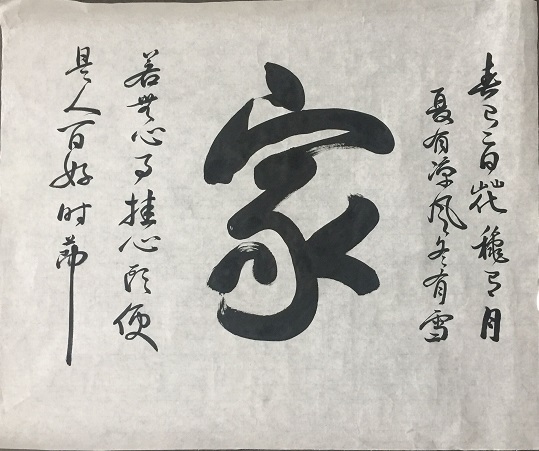 春有百花穐有月
夏有凉风冬有雪
家
若無心事挂心頭便
是人间好时節